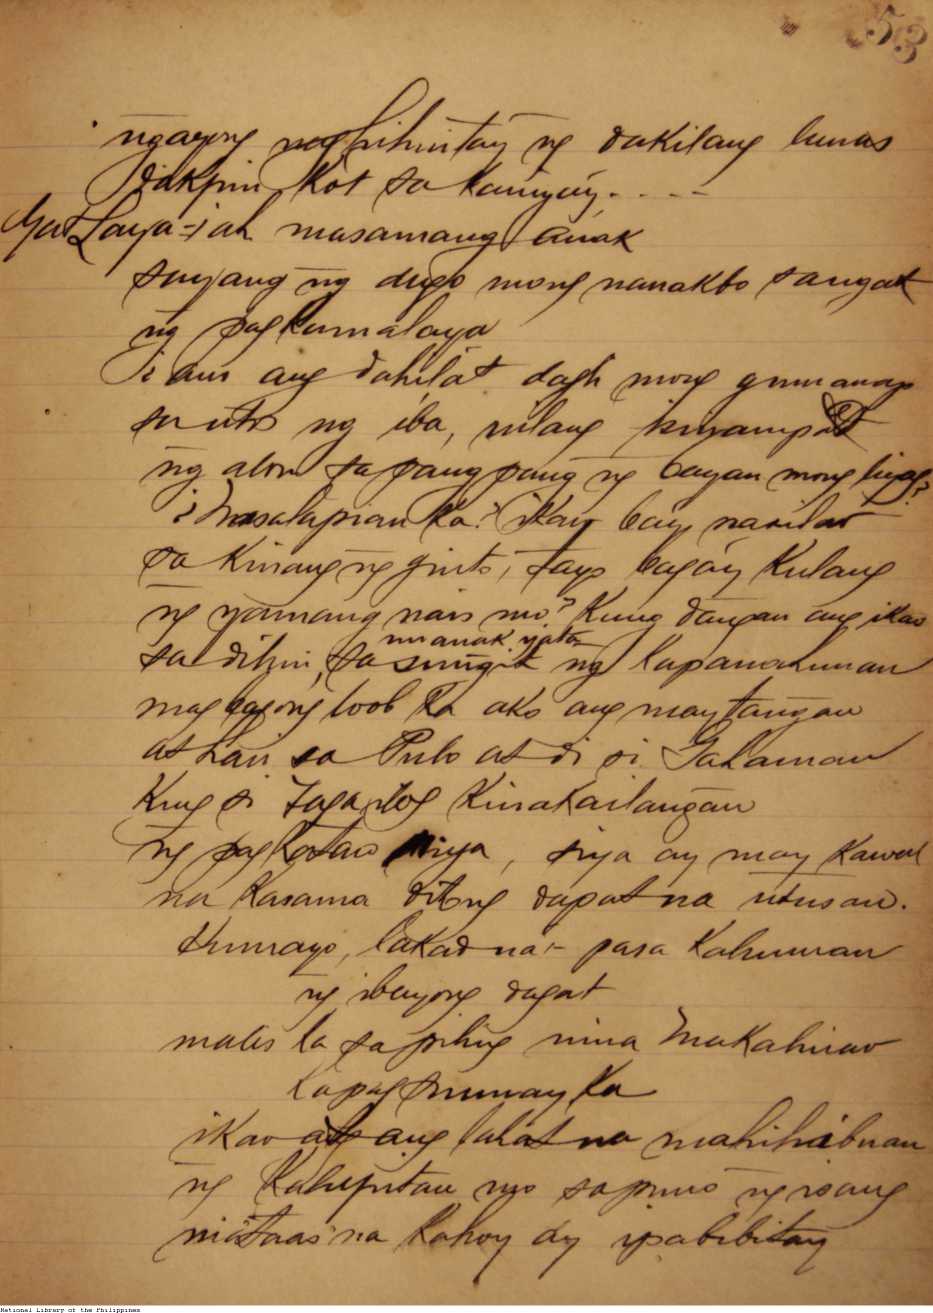 53
ngayong naghihintay ng dakilang lunas
dakpin Kot sa kaniyay. . . . -
Gat Laya = ¡ah masamang anak
ng dugo mong nanakbo sa ugat
ng pag kumalaya
¿ anu ang dahilat dagli mong
sa utos ng iba,
ng alon sa pangpang ng bayan mong
¿ Nasalapian Ka? ikaw bay nasilaw
sa Kinang ng ginto, tayo bagáy Kulang
ng yamang nais mo? Kung dangan ang ikaw
mianak yata
sa dilim, sa ng kapanahunan
mag bagong loob Ka ako ang may tangan
at hari sa Pulo at di si
Kung si Taga ilog Kinakailangan
ng pag niya, siya ay may Kawal
na Kasama ditong dapat na utusan.
lakad na - pasa Kahunuan
ng ibayong dagat
malis ka sa piling nina Makahiraw
kapag sumuay Ka
ikaw at ang lahat na mahihibuan
ng Kalupitan mo sa puno ng isang
mataas na Kahoy ay ipabibitay
National Library of the Philippines